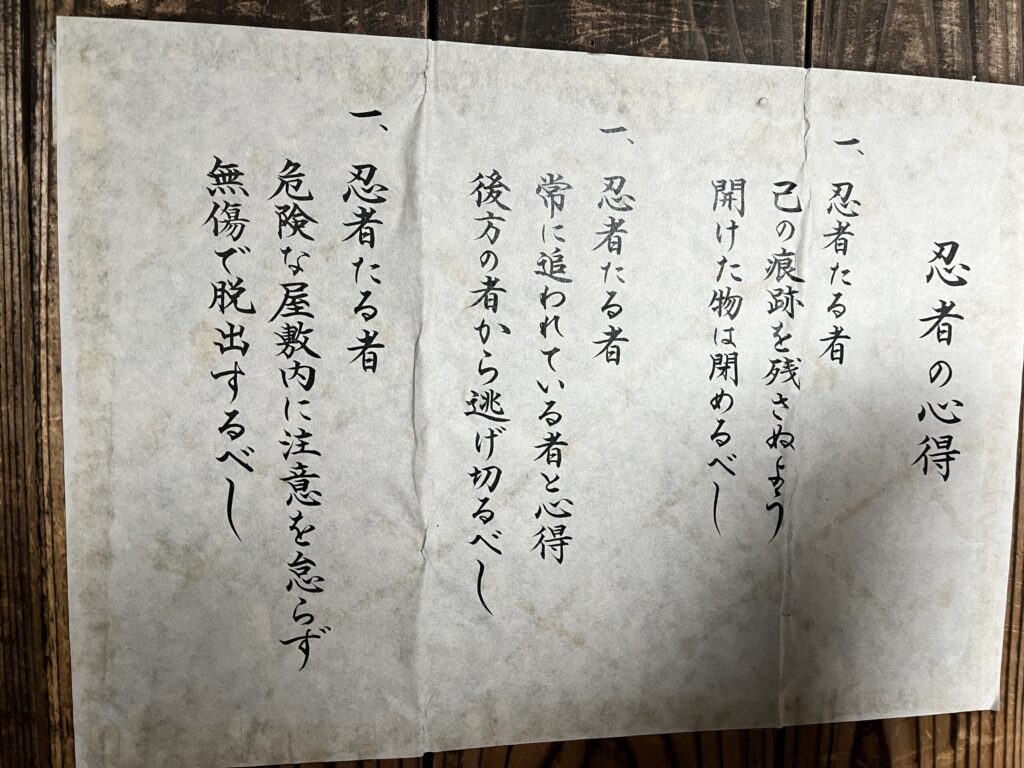 忍者の心得
一、忍者たる者
己の痕跡を残さぬよう
開けた物は閉めるべし
一、忍者たる者
常に追われている者と心得
後方の者から逃げ切るべし
一、忍者たる者
危険な屋敷内に注意を怠らず
無傷で脱出するべし